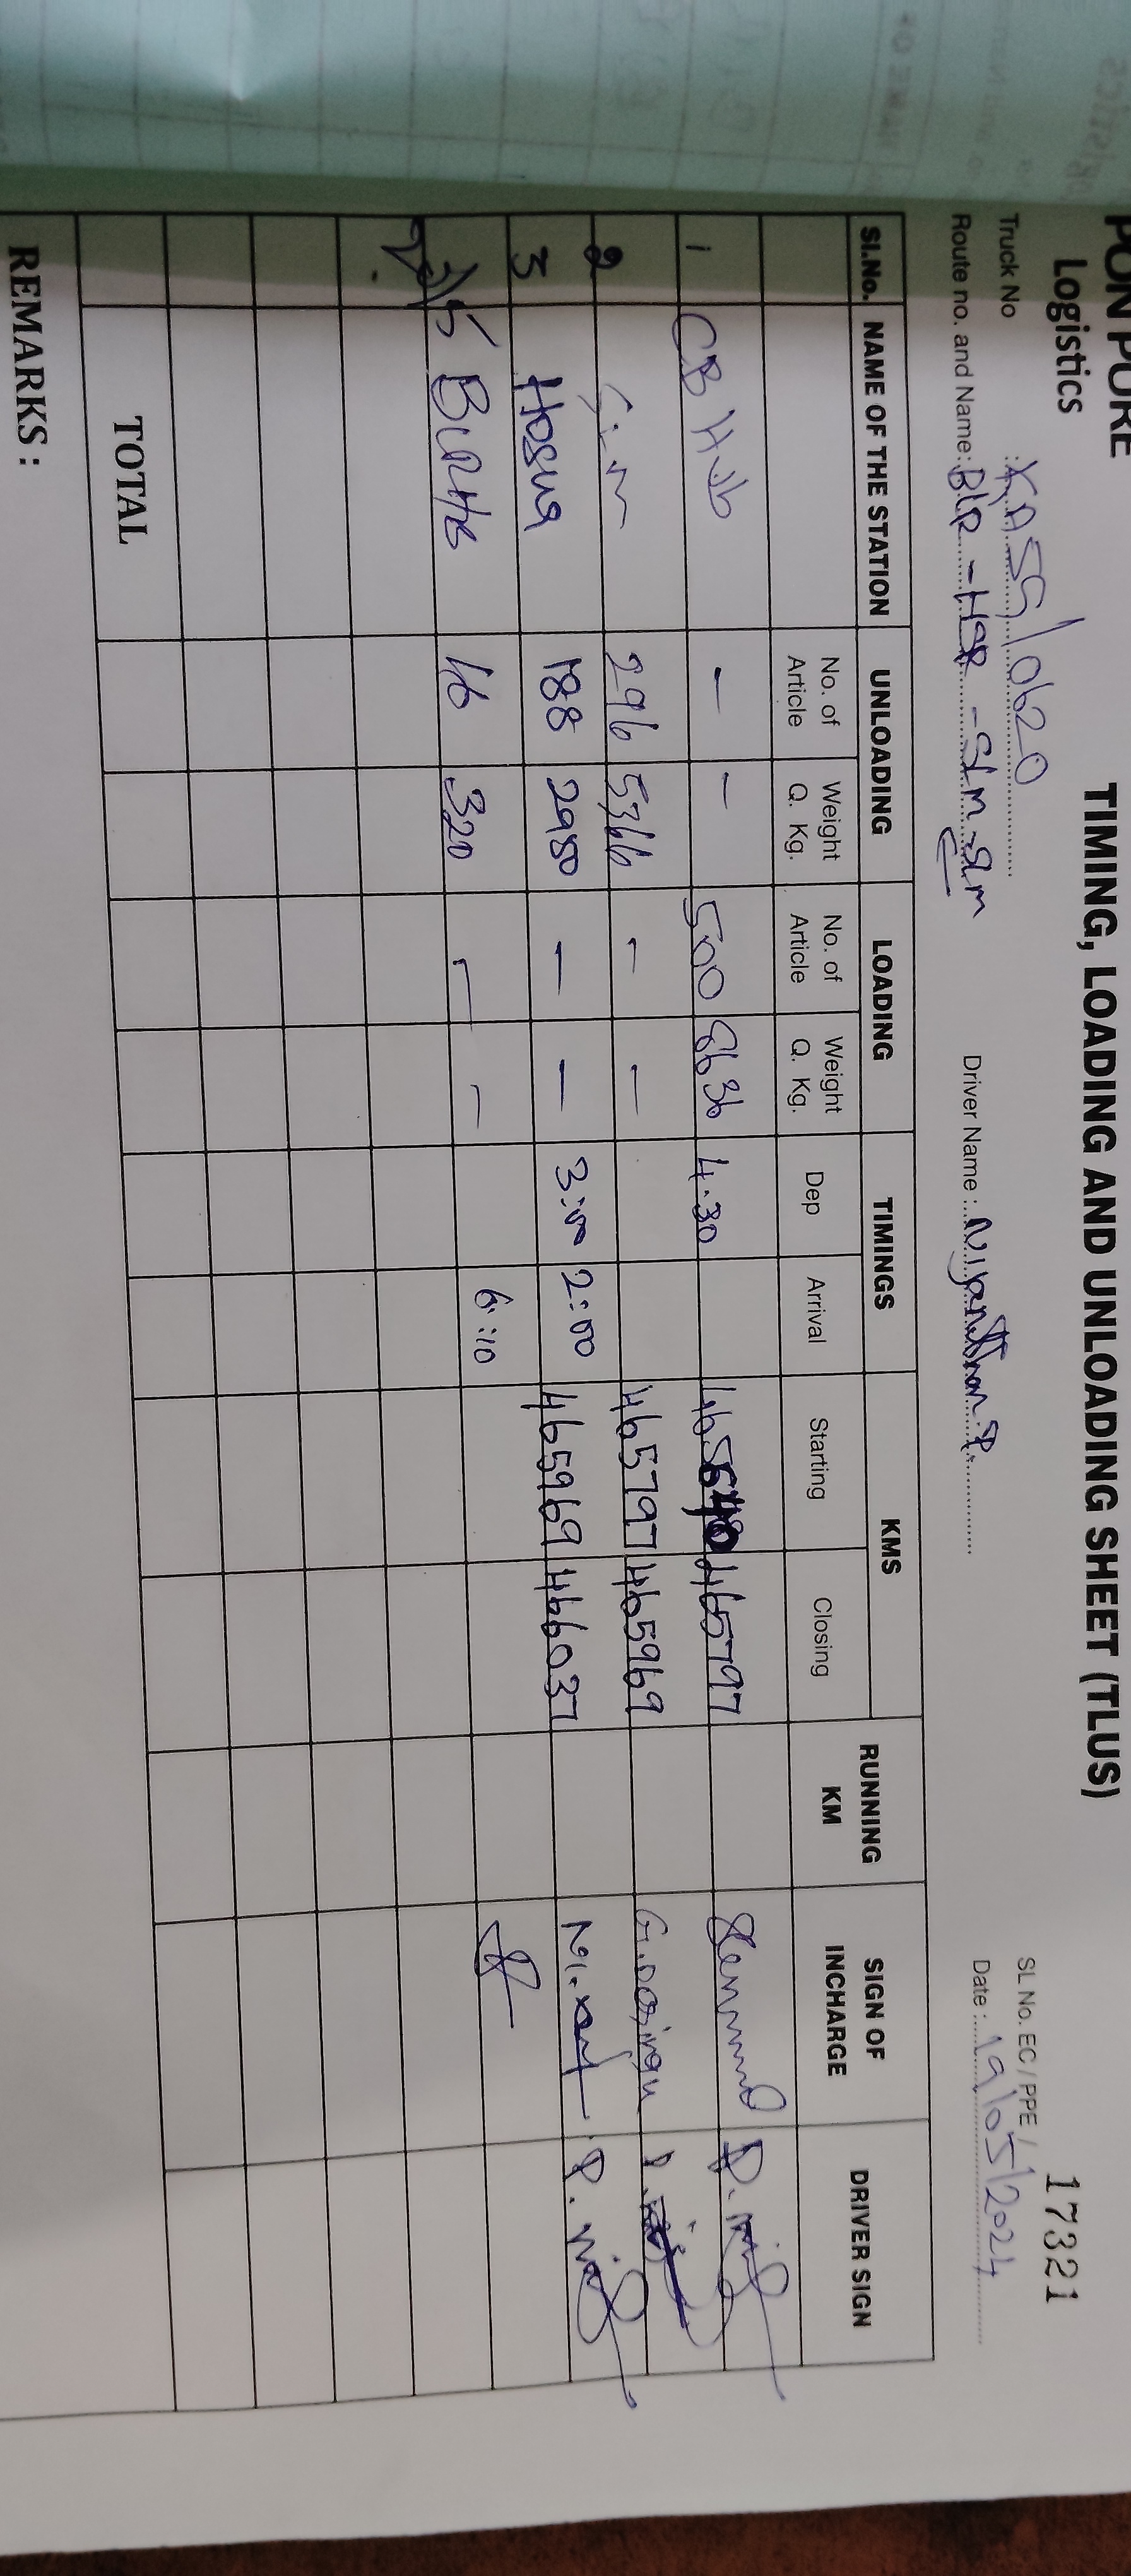 PON PURE
Logistics
TIMING, LOADING AND UNLOADING SHEET (TLUS)
17321
SL No. EC / PPE /
Truck No : KA55/0620
Date : 19/05/2024
Route no. and Name: BLR - HSR - SLM - SLM
Driver Name :
Sl.No. NAME OF THE STATION UNLOADING LOADING TIMINGS KMS RUNNING KM SIGN OF INCHARGE DRIVER SIGN
No. of Article Weight Q. Kg. No. of Article Weight Q. Kg. Dep Arrival Starting Closing
1 CB Hub - - 500 8636 4.30 465640 465797
2 296 5366 - - 465797 465969
3 Hosur 188 2980 - - 3:00 2:00 465969 466037
16 320 - - 6:10
TOTAL
REMARKS :